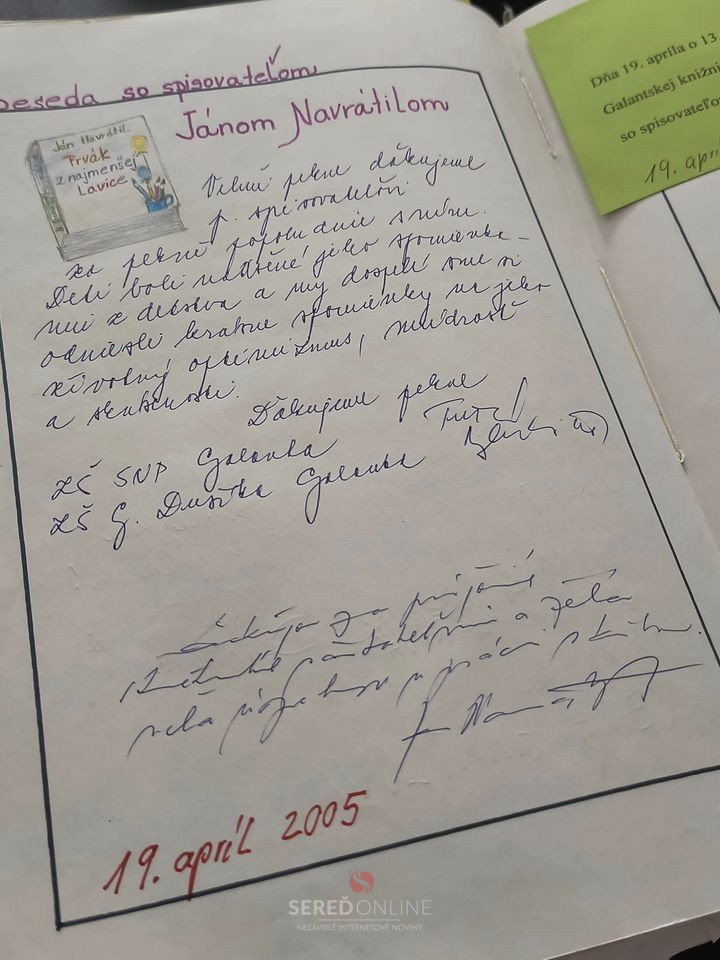 beseda so spisovateľom
Jánom Navrátilom
Ján Navrátil
Prvák
z najmenšej
Lavice
Veľmi pekne ďakujeme
p. spisovateľovi
za pekné popoludnie s ním.
Deti boli nadšené jeho spomienka-
mi z detstva a my dospelí sme si
odniesli krásne spomienky na jeho
životný optimizmus, múdrosť
a skúsenosti.
Ďakujeme pekne
ZŠ SNP Galanta
ZŠ G. Dusíka Galanta
Ďakujem za prijatie
a
19. apríl 2005
Dňa 19. apríla o 13.
Galantskej knižni
so spisovateľo
19. apr
SEREĎONLINE
NEZÁVISLÉ INTERNETOVÉ NOVINY